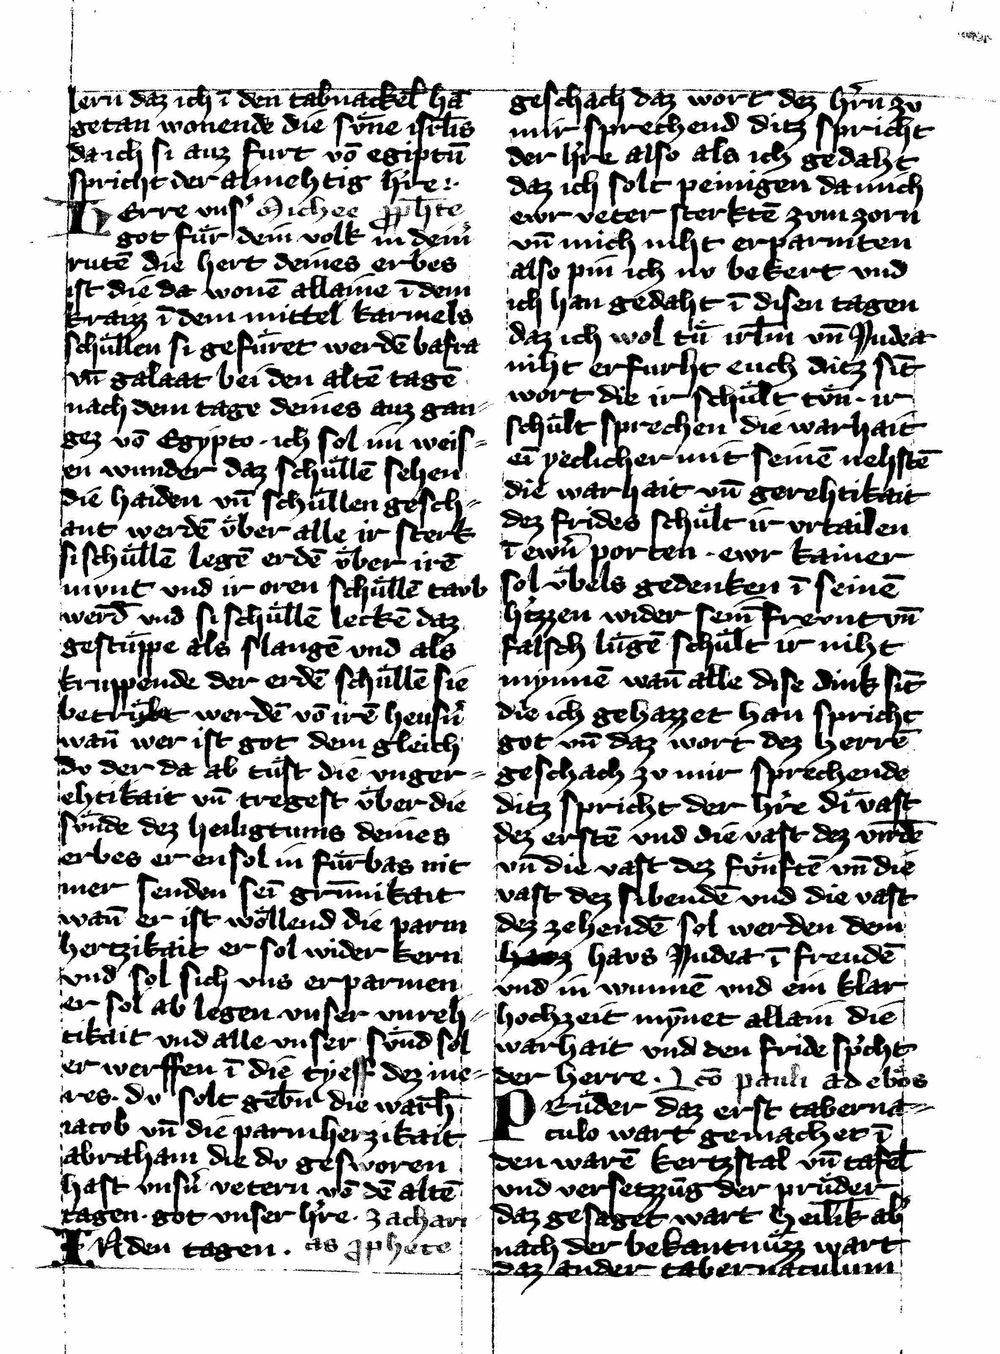 lern daz ich ī den tabnackel̄ han̄
getan wonende die sv̈ne isrl̄s
da ich si auz furt vō egiptū
spricht der almehtig hr̄e :·
HErre vns' Michee ꝓph̄te
got fu̎r dein volk in dein'
rutē die hert deines erbes
ist die da wonē allaine ī dem
kraiz ī dem mittel karmels
schu̎llen si gefu̎ret werdē basra
vn̄ galaat bei den altē tagē
nach dem tage deines auz gan⸗
gez vō Egypto · ich sol im weis⸗
en wunder daz schu̎llē sehen
die haiden vn̄ schu̎llen gesch⸗
ant werdē v̎ber alle ir sterk
si schu̎llē legē erdē v̎ber irē
mvnt vnd ir oren schu̎llē tavb
werd̄ vnd si schu̎llē leckē daz
gestu̎ppe als slangē vnd als
kruppende der erdē schu̎llē sie
betru̎bt werdē vō irē heusn̄
wan̄ wer ist got dem gleich
dv der da ab tu̎st die vnger⸗
ehtikait vn̄ tregest v̎ber die
sv̎nde dez heiligtums deines
erbes er ensol in fu̎rbas nit
mer senden sei grim̄ikait
wan̄ er ist wo̎llend die parm
hertzikait er sol wider kern
vnd sol sich vns erparmen
er sol ab legen vnser vnreh⸗
tikait vnd alle vnser sv̎nd sol
er werffen ī die tyeff dez me⸗
res · dv solt gebn̄ die warh̄
iacob vn̄ die parmherzikait
abraham die dv gesworen
hast vnsn̄ vetern vō dē altē
tagen · got vnser hr̄e · Zachari
IN den tagen · as ꝓphete
geschach daz wort dez hr̄n zv
mir sprechend ditz spricht
der hr̄e also als ich gedaht
daz ich solt peinigen da mich
ewr veter sterktē zvm zorn
vn̄ mich niht erparmten
also pin ich nv bekert vnd
ich han gedaht ī disen tagen
daz ich wol tu̎ irl̄m vn̄ Judea
niht erfurht euch ditz sīt
wort die ir schu̎lt tv̎n · ir
schu̎lt sprechen die warhait
eī yeclicher mit seinē nehstē
die warhait vn̄ gerehtikait
dez frides schu̎lt ir vrtailen
ī ewrn̄ porten · ewr kainer
sol v̎bels gedenken ī seinē
hr̄zzen wider sein̄ frevnt vn̄
falsch lu̎gē schu̎lt ir niht
mynnē wan̄ alle dise dink sīt
die ich gehazzet han spricht
got vn̄ daz wort dez herrē
geschach zv mir sprechende
ditz spricht der hr̄e di vast
dez erstē vnd die vast dez virdē
vn̄ die vast dez fv̎nftē vn̄ die
vast dez sibendē vnd die vast
dez zehendē sol werden dem
havs Judea ī freudē
vnd in wunnē vnd ein klar
hochzeit myn̄et allain die
warhait vnd den fride sp'cht
der herre · Lcō pauli ad ebo̎s
PRu̎der daz erst taberna⸗
culo wart gemachet ī
den warē kertzstal vn̄ tafel̄
vnd versetzzūg der pru̎der
daz gesaget wart heilik ab'
nach der bekantnu̎zz wart
daz ander tabernaculum